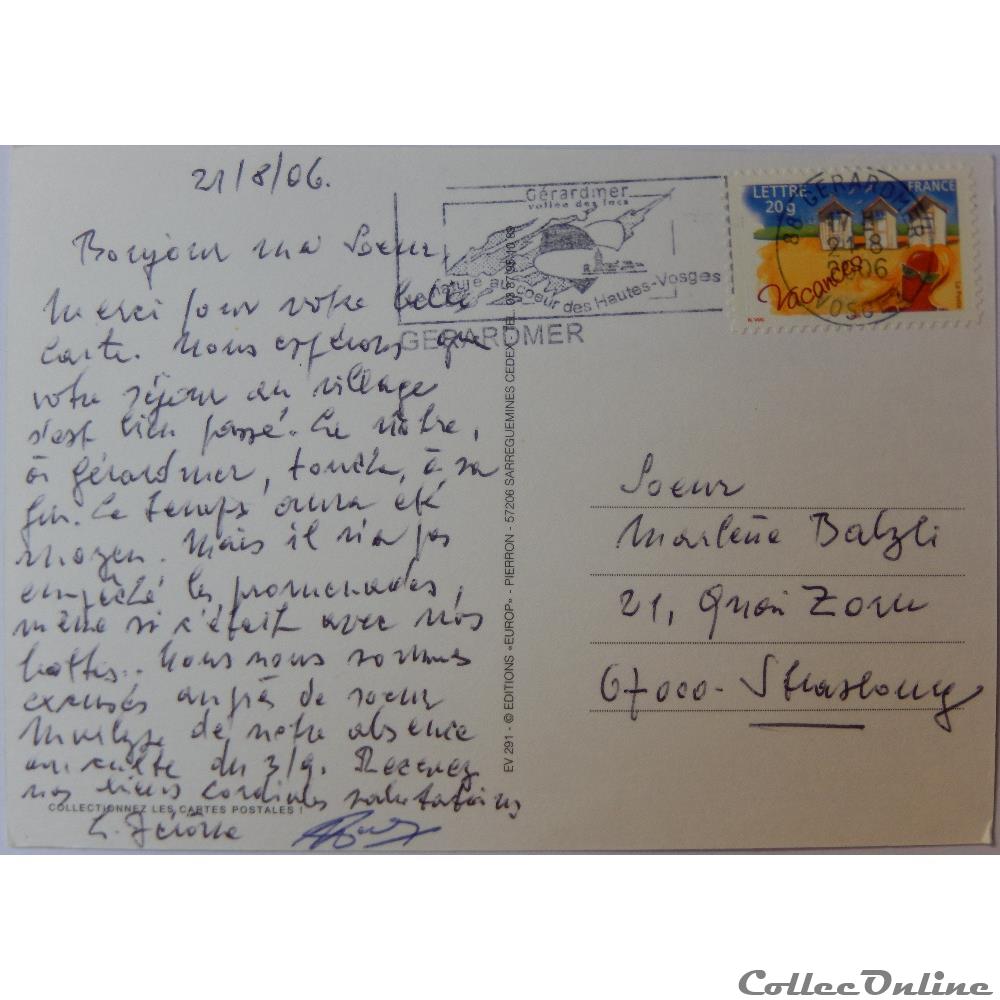 21/8/06.
Bonjour ma Soeur,
Merci pour votre belle
carte. Nous espérons que
votre séjour au village
s'est bien passé. Le nôtre,
à Gérardmer, touche, à sa
fin. Le temps aura été
moyen. Mais il n'a pas
empêché les promenades,
même si c'était avec nos
bottes.. Nous nous sommes
excusés auprès de soeur
de notre absence
au culte du 3/9. Recevez
nos biens cordiales salutations
COLLECTIONNEZ LES CARTES POSTALES !
Gérardmer
vallée des lacs
nature au coeur des Hautes-Vosges
GERARDMER
LETTRE
20g
FRANCE
Vacances
La Poste
88 GERARDMER
21-8
2006
VOSGES
EV 291 - © EDITIONS «EUROP» - PIERRON - 57206 SARREGUEMINES CEDEX - TEL. 03 87 95 10 89
Soeur
Marlène Balzli
21, Quai Zorn
67000 - Strasbourg
CollecOnline